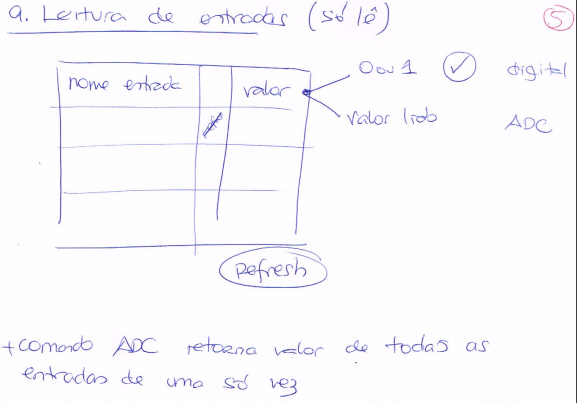 9. Leitura de entradas (só lê)
5
nome entrada
valor
0 ou 1
digital
valor lido
ADC
Refresh
+ comando ADC retorna valor de todas as
entradas de uma só vez